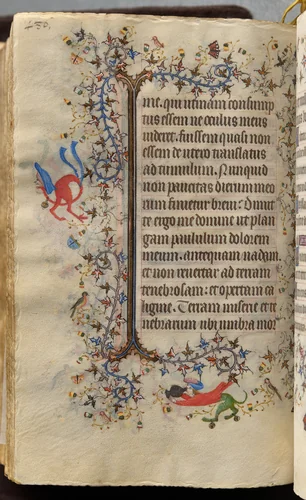 mt. qui utinam consump
tus essem ne oculus meus
videret. fuissem quasi non
essem de utero translatus
ad tumulum. Nunquid
non paucitas dierum meo
rum finietur brevi: Dimit
te ergo me domine ut plan
gam paululum dolorem
meum. antequam vadam.
et non revertar ad terram
tenebrosam: et opertam ca
ligine. Terram miserie et te
nebrarum ubi umbra mor